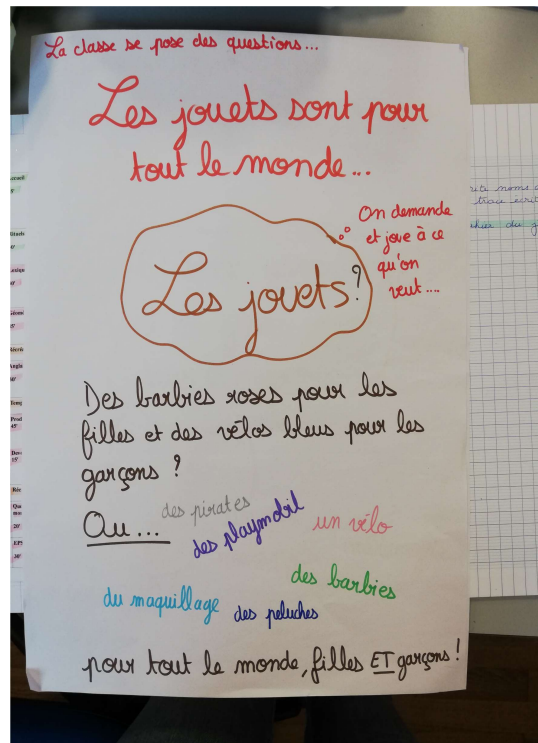 La classe se pose des questions...
Les jouets sont pour
tout le monde...
On demande
et joue à ce
qu'on
veut....
Les jouets?
Des barbies roses pour les
filles et des vélos bleus pour les
garçons ?
Ou...
des pirates
des playmobil
un vélo
des barbies
du maquillage
des peluches
pour tout le monde, filles ET garçons !